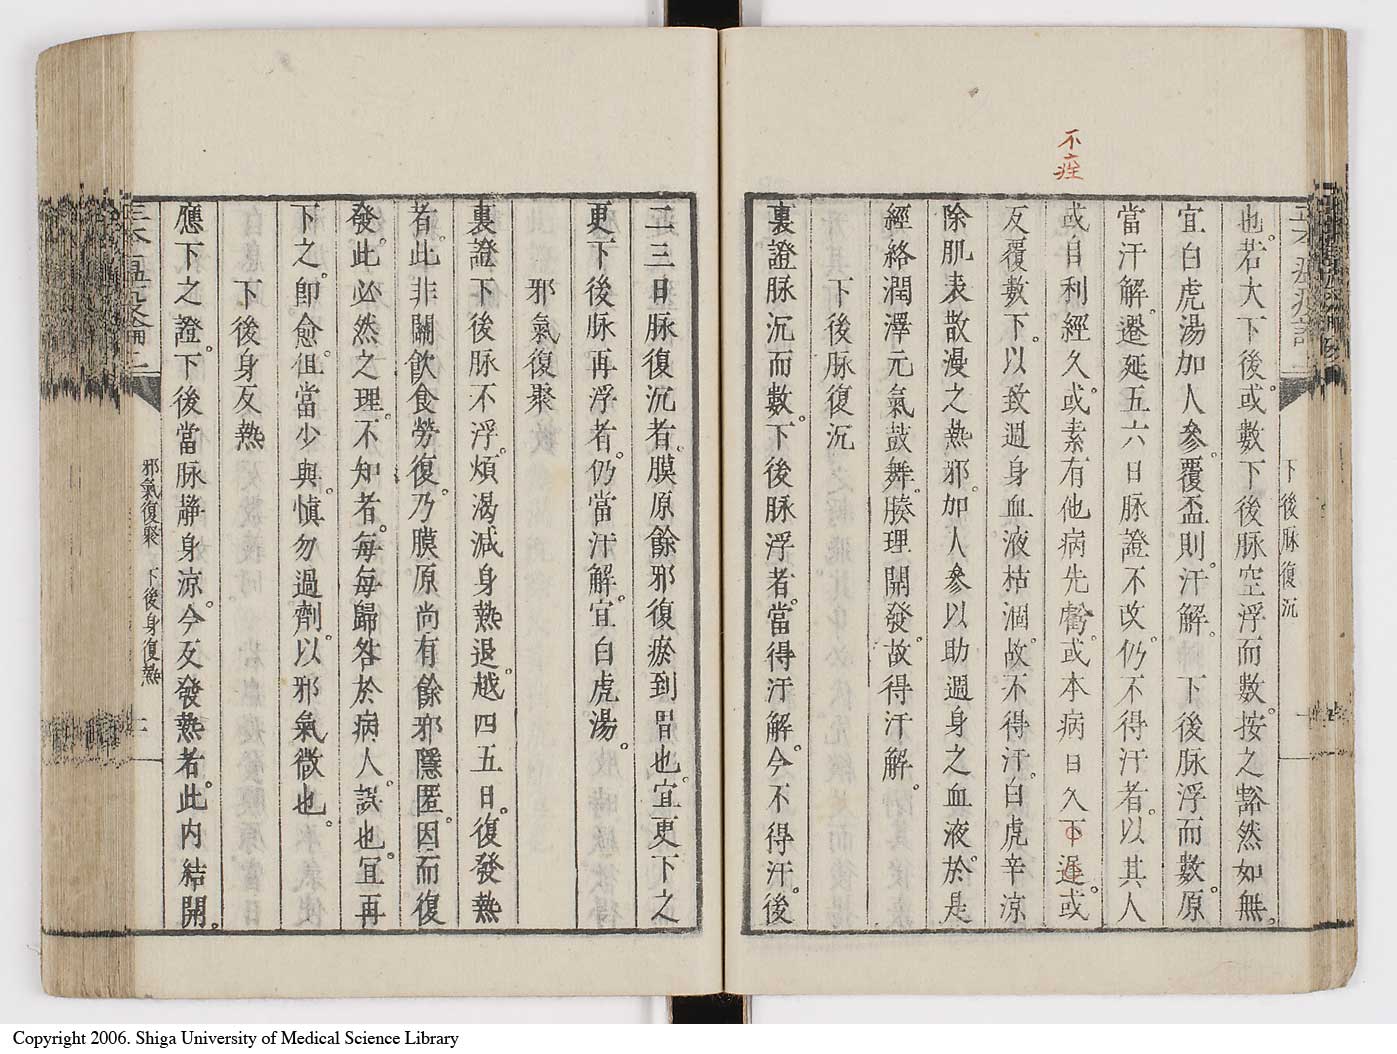 不痊
下後脉復沉
也。若大下後。或數下後。脉空浮而數。按之豁然如無。
宜白虎湯加人參。覆盃則汗解。下後脉浮而數。原
當汗解。遷延五六日。脉證不改。仍不得汗者。以其人
或自利經久。或素有他病先虧。或本病日久下遲。或
反覆數下。以致週身血液枯涸。故不得汗。白虎辛涼
除肌表散漫之熱邪。加人參以助週身之血液。於是
經絡潤澤。元氣鼓舞。腠理開發。故得汗解。
下後脉復沉
裏證脉沉而數。下後脉浮者。當得汗解。今不得汗。後
二三日脉復沉者。膜原餘邪復瘀到胃也。宜更下之
更下後。脉再浮者。仍當汗解。宜白虎湯。
邪氣復聚
裏證下後脉不浮。煩渴減身熱退。越四五日。復發熱
者。此非關飲食勞復。乃膜原尚有餘邪隱匿。因而復
發。此必然之理。不知者。每每歸咎於病人。誤也。宜再
下之。即愈。徂當少與。慎勿過劑。以邪氣微也。
下後身反熱
應下之證。下後當脉靜身涼。今反發熱者。此内結開。
邪氣復聚 下後身復熱